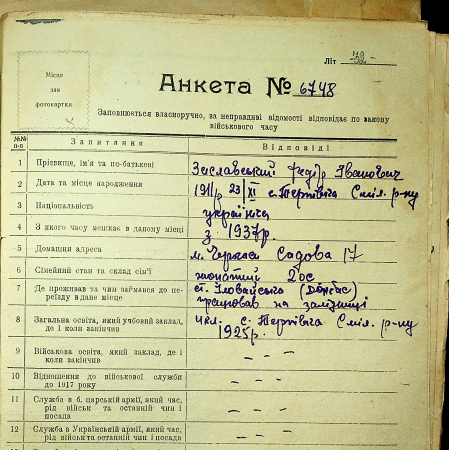 Літ
Місце
для
фотокартки
Анкета № 6748
Заповнюється власноручно, за неправдиві відомості відповідає по закону
військового часу
№№
п-п
Запитання
Відповіді
1 Прізвище, ім'я та по-батькові
Заславський Федір Іванович
2 Дата та місце народження
1911р 23/XI с. Тернівка Сміл. р-ну
3 Національність
українець
4 З якого часу мешкає в даному місці
з 1937р.
5 Домашня адреса
м. Черкаси Садова 17
6 Сімейний стан та склад сім'ї
жонатий 2 ос
7 Де проживав та чим займався до пе-
реїзду в дане місце
ст. Іловайська (Донбас)
працював на залізниці
8 Загальна освіта, який учбовий заклад,
де і коли закінчив
с. Тернівка Сміл. р-ну
1925р.
9 Військова освіта, який заклад, де і
коли закінчив
– –
10 Відношення до військової служби
до 1917 року
– –
11 Служба в б. царській армії, який час,
рід військ та останній чин і
посада
– –
12 Служба в Українській армії, який час,
рід військ та останній чин і посада
– –